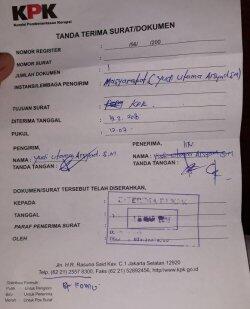 KPK
Komisi Pemberantasan Korupsi
TANDA TERIMA SURAT/DOKUMEN
NOMOR REGISTER :
NOMOR SURAT :
JUMLAH DOKUMEN : 1
INSTANSI/LEMBAGA PENGIRIM : Masyarakat (Yudi Utama Arsyad. S.M)
TUJUAN SURAT : KPK
DITERIMA TANGGAL :
PUKUL :
PENGIRIM, PENERIMA,
NAMA : Yudi Utama Arsyad. S.M NAMA : Yudi Utama Arsyad S.M
TANDA TANGAN : TANDA TANGAN :
DOKUMEN/SURAT TERSEBUT TELAH DISERAHKAN,
KEPADA :
TANGGAL :
PARAF PENERIMA SURAT :
OLEH :
Jln. H.R. Rasuna Said Kav. C.1 Jakarta Selatan 12920
Telp. (62 21) 2557 8300, Faks (62 21) 52892456, http://www.kpk.go.id
Distribusi Formulir :
Putih : Untuk Pengirim
Biru : Untuk Penerima
Merah : Untuk Pos Surat